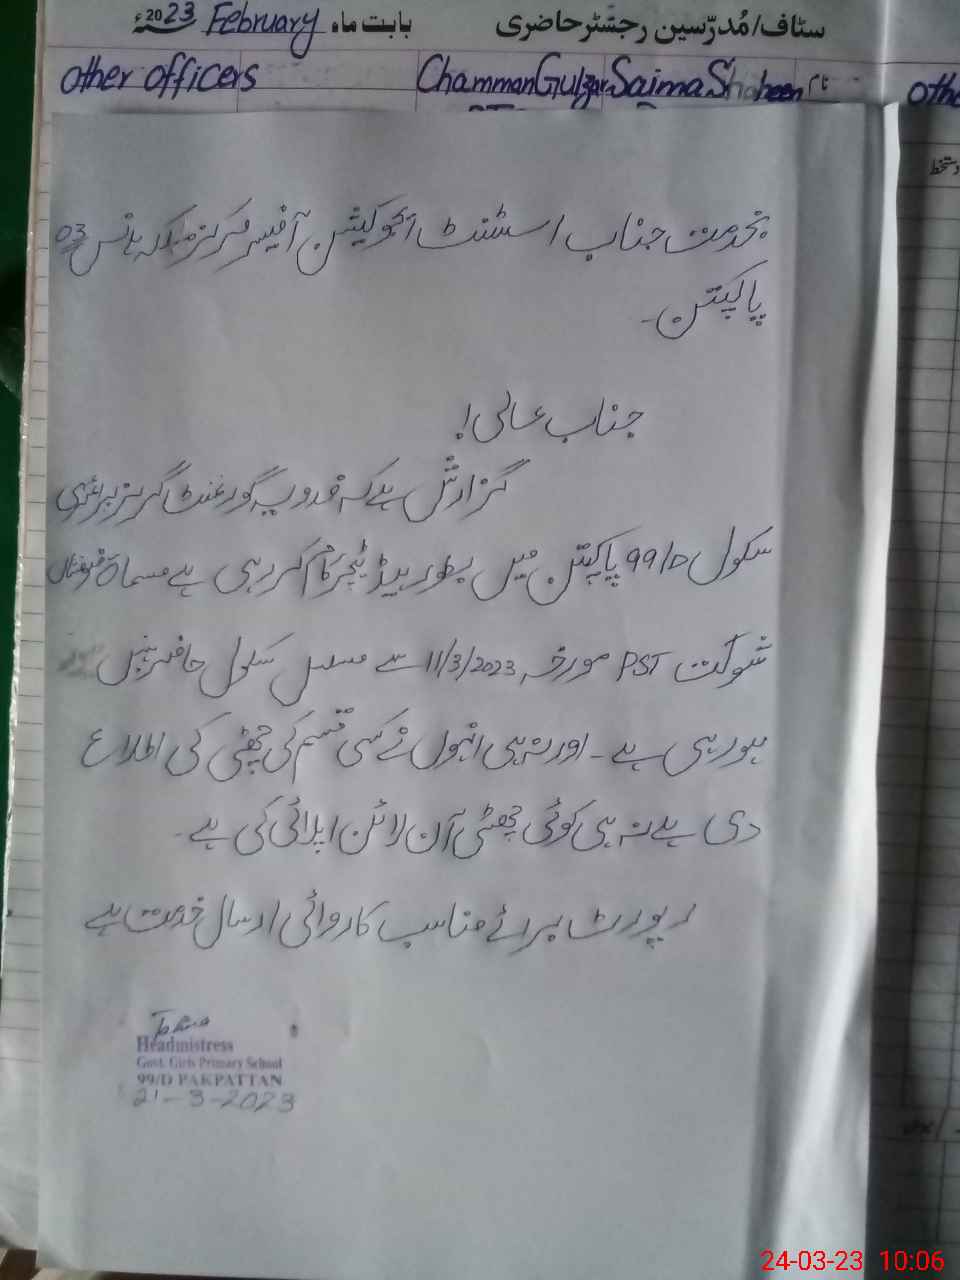 سٹاف/مُدرّسین رجسٹر حاضری بابت ماہ February 2023ء
other officers Chamman Gulzar Saima Shaheen نام
othe
دستخط
بخدمت جناب اسسٹنٹ ایجوکیشن آفیسر مرکز ملکہ ہانس 03
پاکپتن۔
جناب عالی!
گزارش ہے کہ فدویہ گورنمنٹ گرلز پرائمری
سکول 99/D پاکپتن میں بطور ہیڈ ٹیچر کام کر رہی ہے مسماۃ
شوکت PST مورخہ 11/3/2023 سے مسلسل سکول حاضر نہیں
ہو رہی ہے ۔ اور نہ ہی انہوں نے کسی قسم کی چھٹی کی اطلاع
دی ہے نہ ہی کوئی چھٹی آن لائن اپلائی کی ہے ۔
رپورٹ برائے مناسب کاروائی ارسال خدمت ہے
Headmistress
Govt. Girls Primary School
99/D PAKPATTAN
21-3-2023
24-03-23 10:06